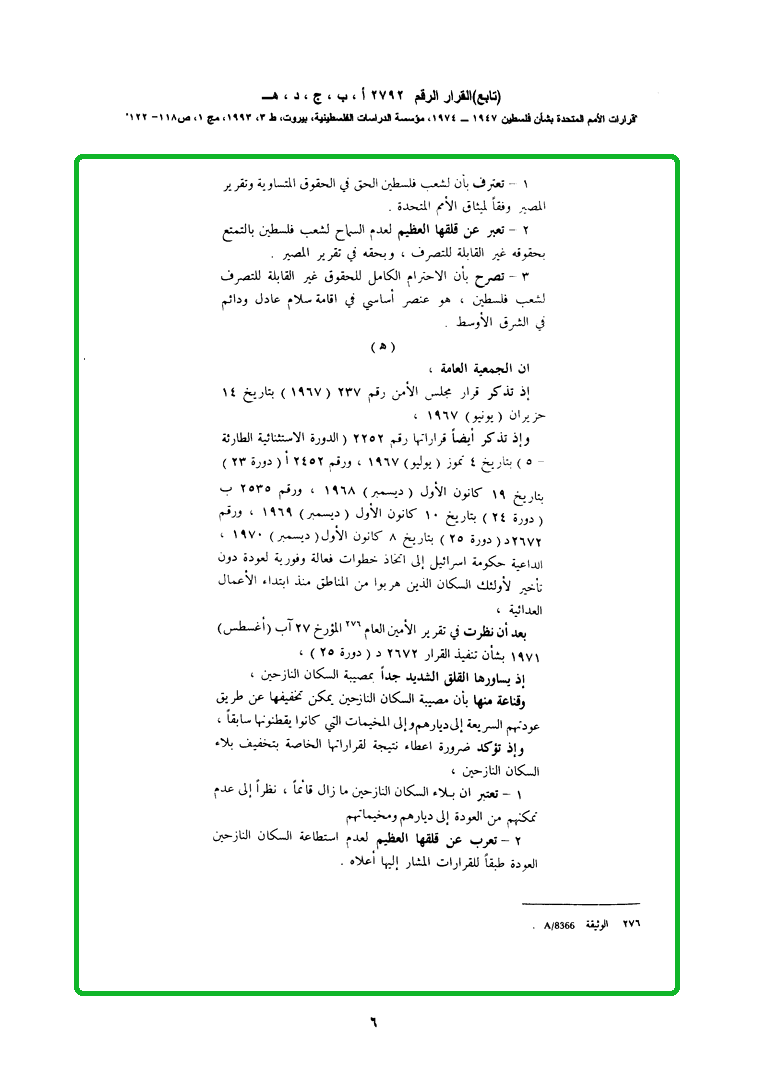 (تابع)القرار الرقم ٢٧٩٢ أ ، ب ، ج ، د ، هـ
"قرارات الأمم المتحدة بشأن فلسطين ١٩٤٧ ــ ١٩٧٤، مؤسسة الدراسات الفلسطينية، بيروت، ط ٣، ١٩٩٣، مج ١، ص١١٨- ١٢٢"
١ - تعترف بأن لشعب فلسطين الحق في الحقوق المتساوية وتقرير
المصير وفقاً لميثاق الأمم المتحدة .
٢ - تعبر عن قلقها العظيم لعدم السماح لشعب فلسطين بالتمتع
بحقوقه غير القابلة للتصرف ، وبحقه في تقرير المصير .
٣ - تصرح بأن الاحترام الكامل للحقوق غير القابلة للتصرف
لشعب فلسطين ، هو عنصر أساسي في اقامة سلام عادل ودائم
في الشرق الأوسط .
( ﻫ )
ان الجمعية العامة ،
إذ تذكر قرار مجلس الأمن رقم ٢٣٧ ( ١٩٦٧ ) بتاريخ ١٤
حزيران ( يونيو ) ١٩٦٧ ،
وإذ تذكر أيضاً قراراتها رقم ٢٢٥٢ ( الدورة الاستثنائية الطارئة
- ٥ ) بتاريخ ٤ تموز ( يوليو ) ١٩٦٧ ، ورقم ٢٤٥٢ أ ( دورة ٢٣ )
بتاريخ ١٩ كانون الأول ( ديسمبر ) ١٩٦٨ ، ورقم ٢٥٣٥ ب
( دورة ٢٤ ) بتاريخ ١٠ كانون الأول ( ديسمبر ) ١٩٦٩ ، ورقم
٢٦٧٢د ( دورة ٢٥ ) بتاريخ ٨ كانون الأول( ديسمبر ) ١٩٧٠ ،
الداعية حكومة اسرائيل إلى اتخاذ خطوات فعالة وفورية لعودة دون
تأخير لأولئك السكان الذين هربوا من المناطق منذ ابتداء الأعمال
العدائية ،
بعد أن نظرت في تقرير الأمين العام ٢٧٦ المؤرخ ٢٧ آب (أغسطس)
١٩٧١ بشأن تنفيذ القرار ٢٦٧٢ د ( دورة ٢٥ ) ،
إذ يساورها القلق الشديد جداً بمصيبة السكان النازحين ،
وقناعة منها بأن مصيبة السكان النازحين يمكن تخفيفها عن طريق
عودتهم السريعة إلى ديارهم وإلى المخيمات التي كانوا يقطنونها سابقاً ،
وإذ تؤكد ضرورة اعطاء نتيجة لقراراتها الخاصة بتخفيف بلاء
السكان النازحين ،
١ - تعتبر ان بلاء السكان النازحين ما زال قائماً ، نظراً إلى عدم
تمكنهم من العودة إلى ديارهم ومخيماتهم
٢ - تعرب عن قلقها العظيم لعدم استطاعة السكان النازحين
العودة طبقاً للقرارات المشار إليها أعلاه .
٢٧٦ الوثيقة A/8366 .
٦